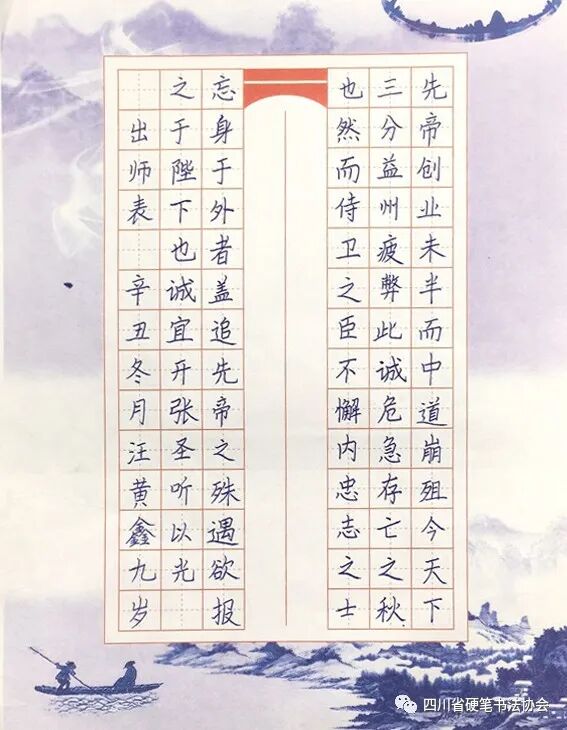 先帝创业未半而中道崩殂今天下
三分益州疲弊此诚危急存亡之秋
也然而侍卫之臣不懈内忠志之士
忘身于外者盖追先帝之殊遇欲报
之于陛下也诚宜开张圣听以光
出师表 辛丑冬月汪黄鑫九岁
四川省硬笔书法协会